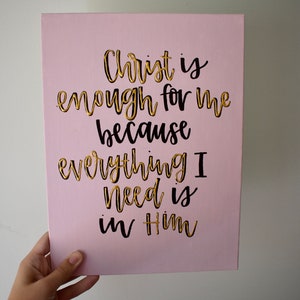 Christ is
enough for me
because
everything I
need is
in Him